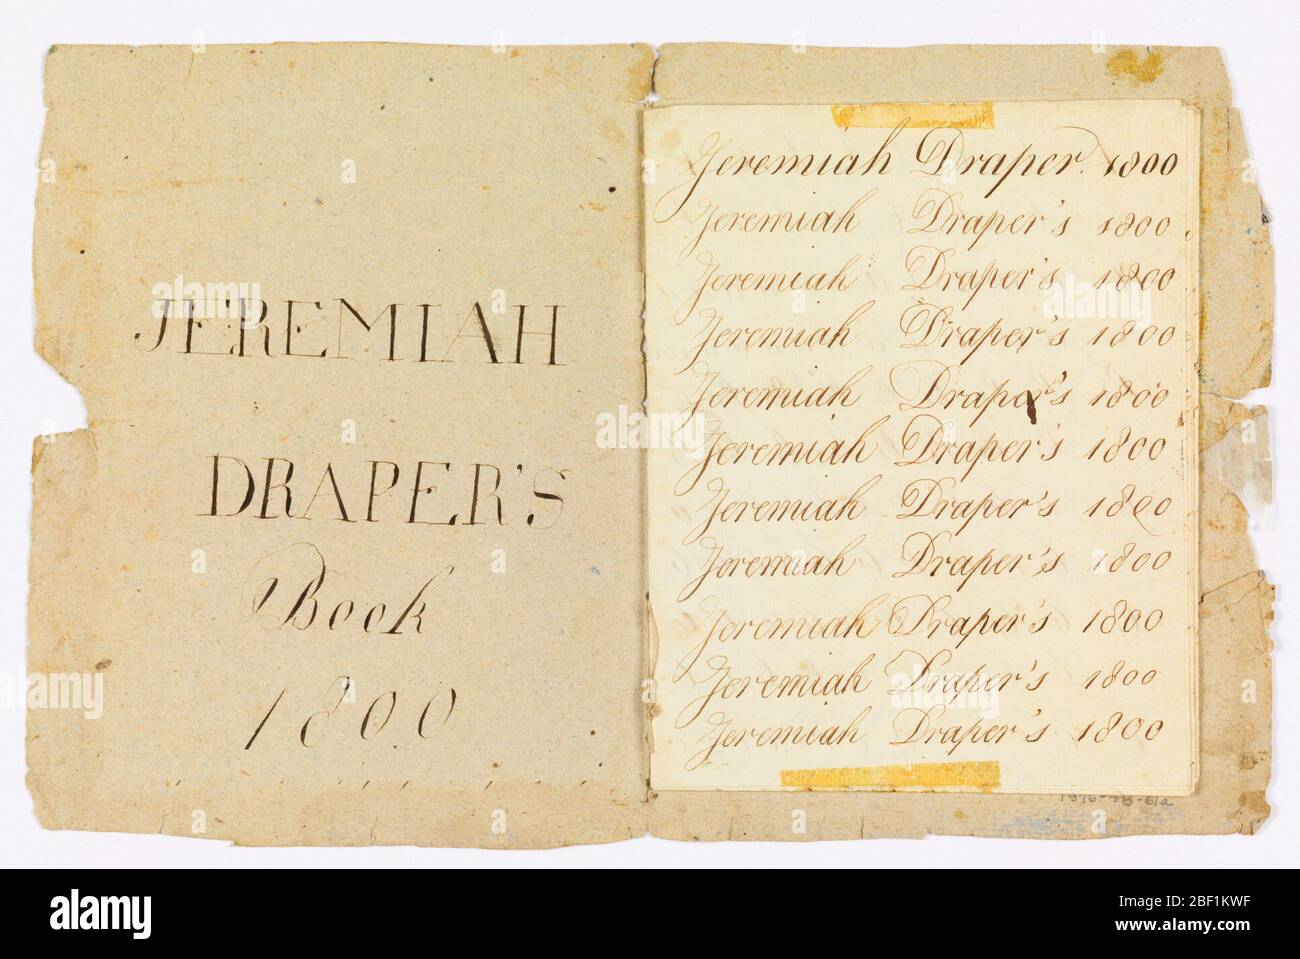 JEREMIAH
DRAPER'S
Book
1800
Jeremiah Draper. 1800
Jeremiah Draper's 1800
Jeremiah Draper's 1800
Jeremiah Draper's 1800
Jeremiah Draper's 1800
Jeremiah Draper's 1800
Jeremiah Draper's 1800
Jeremiah Draper's 1800
Jeremiah Draper's 1800
Jeremiah Draper's 1800
Jeremiah Draper's 1800
1876-78-61a
alamy
Image ID: 2BF1KWF
www.alamy.com